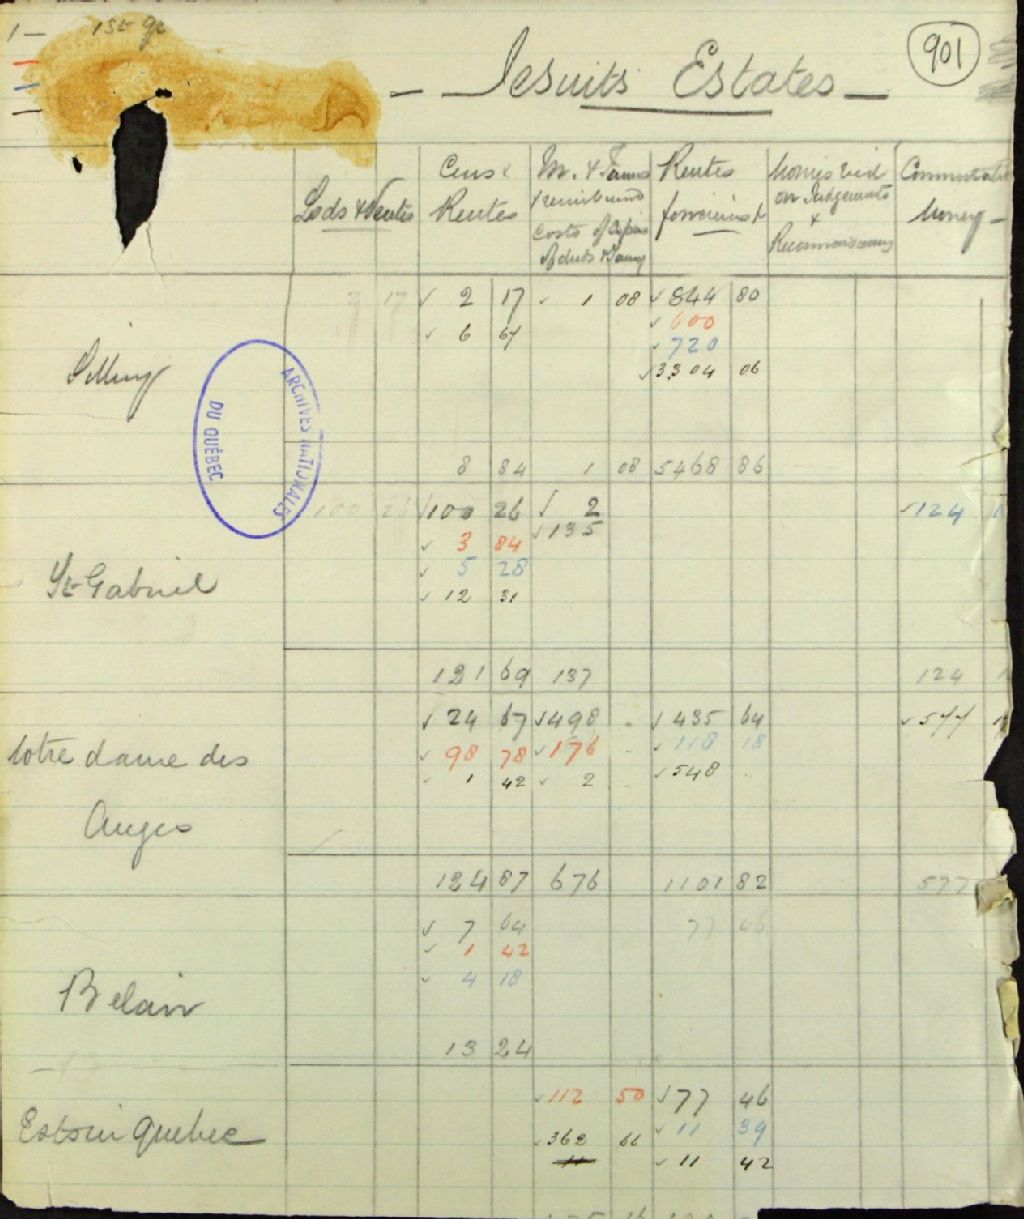 1 — 1st qr
901
— Jesuits Estates —
Lods & Ventes
Cens &
Rentes
M. &
costs of
Rentes
foncières &
Monies
on Judgements
&
Commutation
Money —
✓ 2 17 ✓ 1 08 ✓ 844 80
✓ 6 67 ✓ 600
✓ 720
✓ 3304 06
Sillery
ARCHIVES NATIONALES
DU QUÉBEC
8 84 1 08 5468 86
100 26 ✓ 100 26 ✓ 2 ✓ 124
✓ 3 84 ✓ 135
✓ 5 28
St Gabriel ✓ 12 31
121 69 137 124
✓ 24 67 ✓ 498 ✓ 435 64 ✓ 577
✓ 98 78 ✓ 176 ✓ 118 18
Notre dame des ✓ 1 42 ✓ 2 ✓ 548
Anges
124 87 676 1101 82 577
✓ 7 64 77 46
✓ 1 42
✓ 4 18
Belair
13 24
✓ 112 50 ✓ 77 46
Quebec ✓ 362 66 ✓ 11 39
11 ✓ 11 42